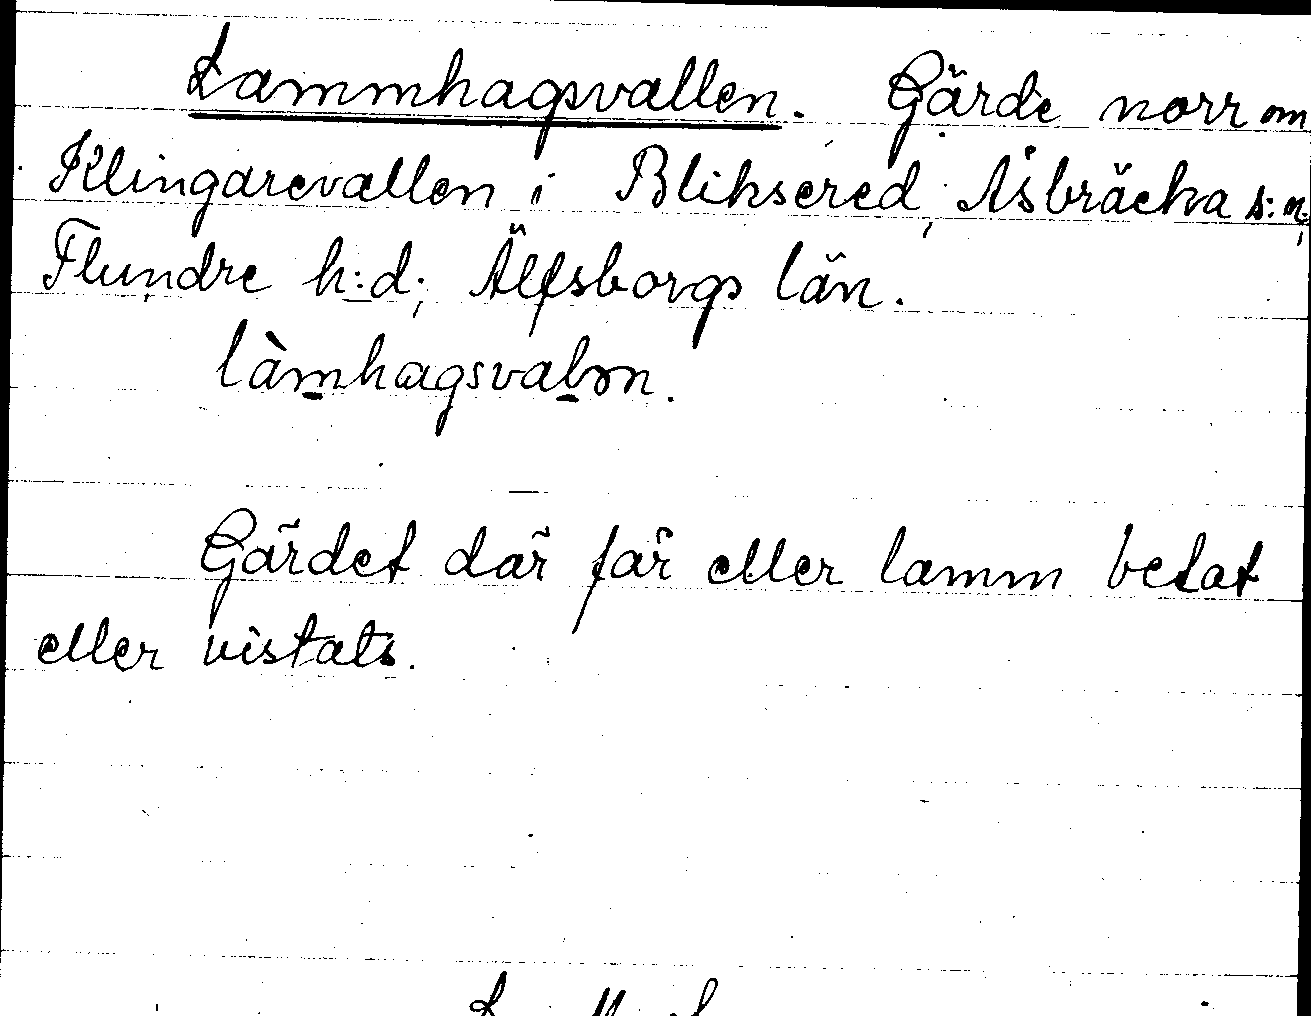 Lammhagsvallen. Gärde norr om
Klingarevallen i Bliksered, Åsbräcka s:n;
Flundre h:d; Älfsborgs län.
làmhagsvalən.
Gärdet där får eller lamm betat
eller vistats.